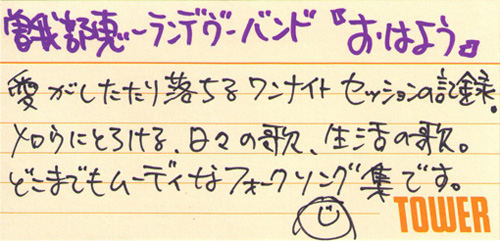 曽我部恵一ランデヴーバンド『おはよう』
愛がしたたり落ちるワンナイト セッションの記録。
メロウにとろける、日々の歌、生活の歌。
どこまでもムーディなフォークソング集です。
TOWER